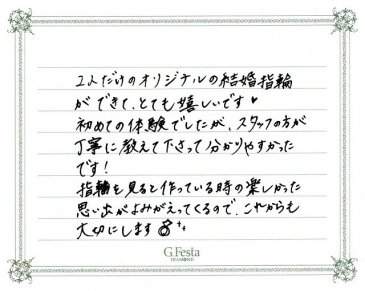 2人だけのオリジナルの結婚指輪
ができて、とても嬉しいです♥
初めての体験でしたが、スタッフの方が
丁寧に教えて下さって分かりやすかった
です!
指輪を見ると作っている時の楽しかった
思い出がよみがえってくるので、これからも
大切にします
G.Festa
DIAMOND